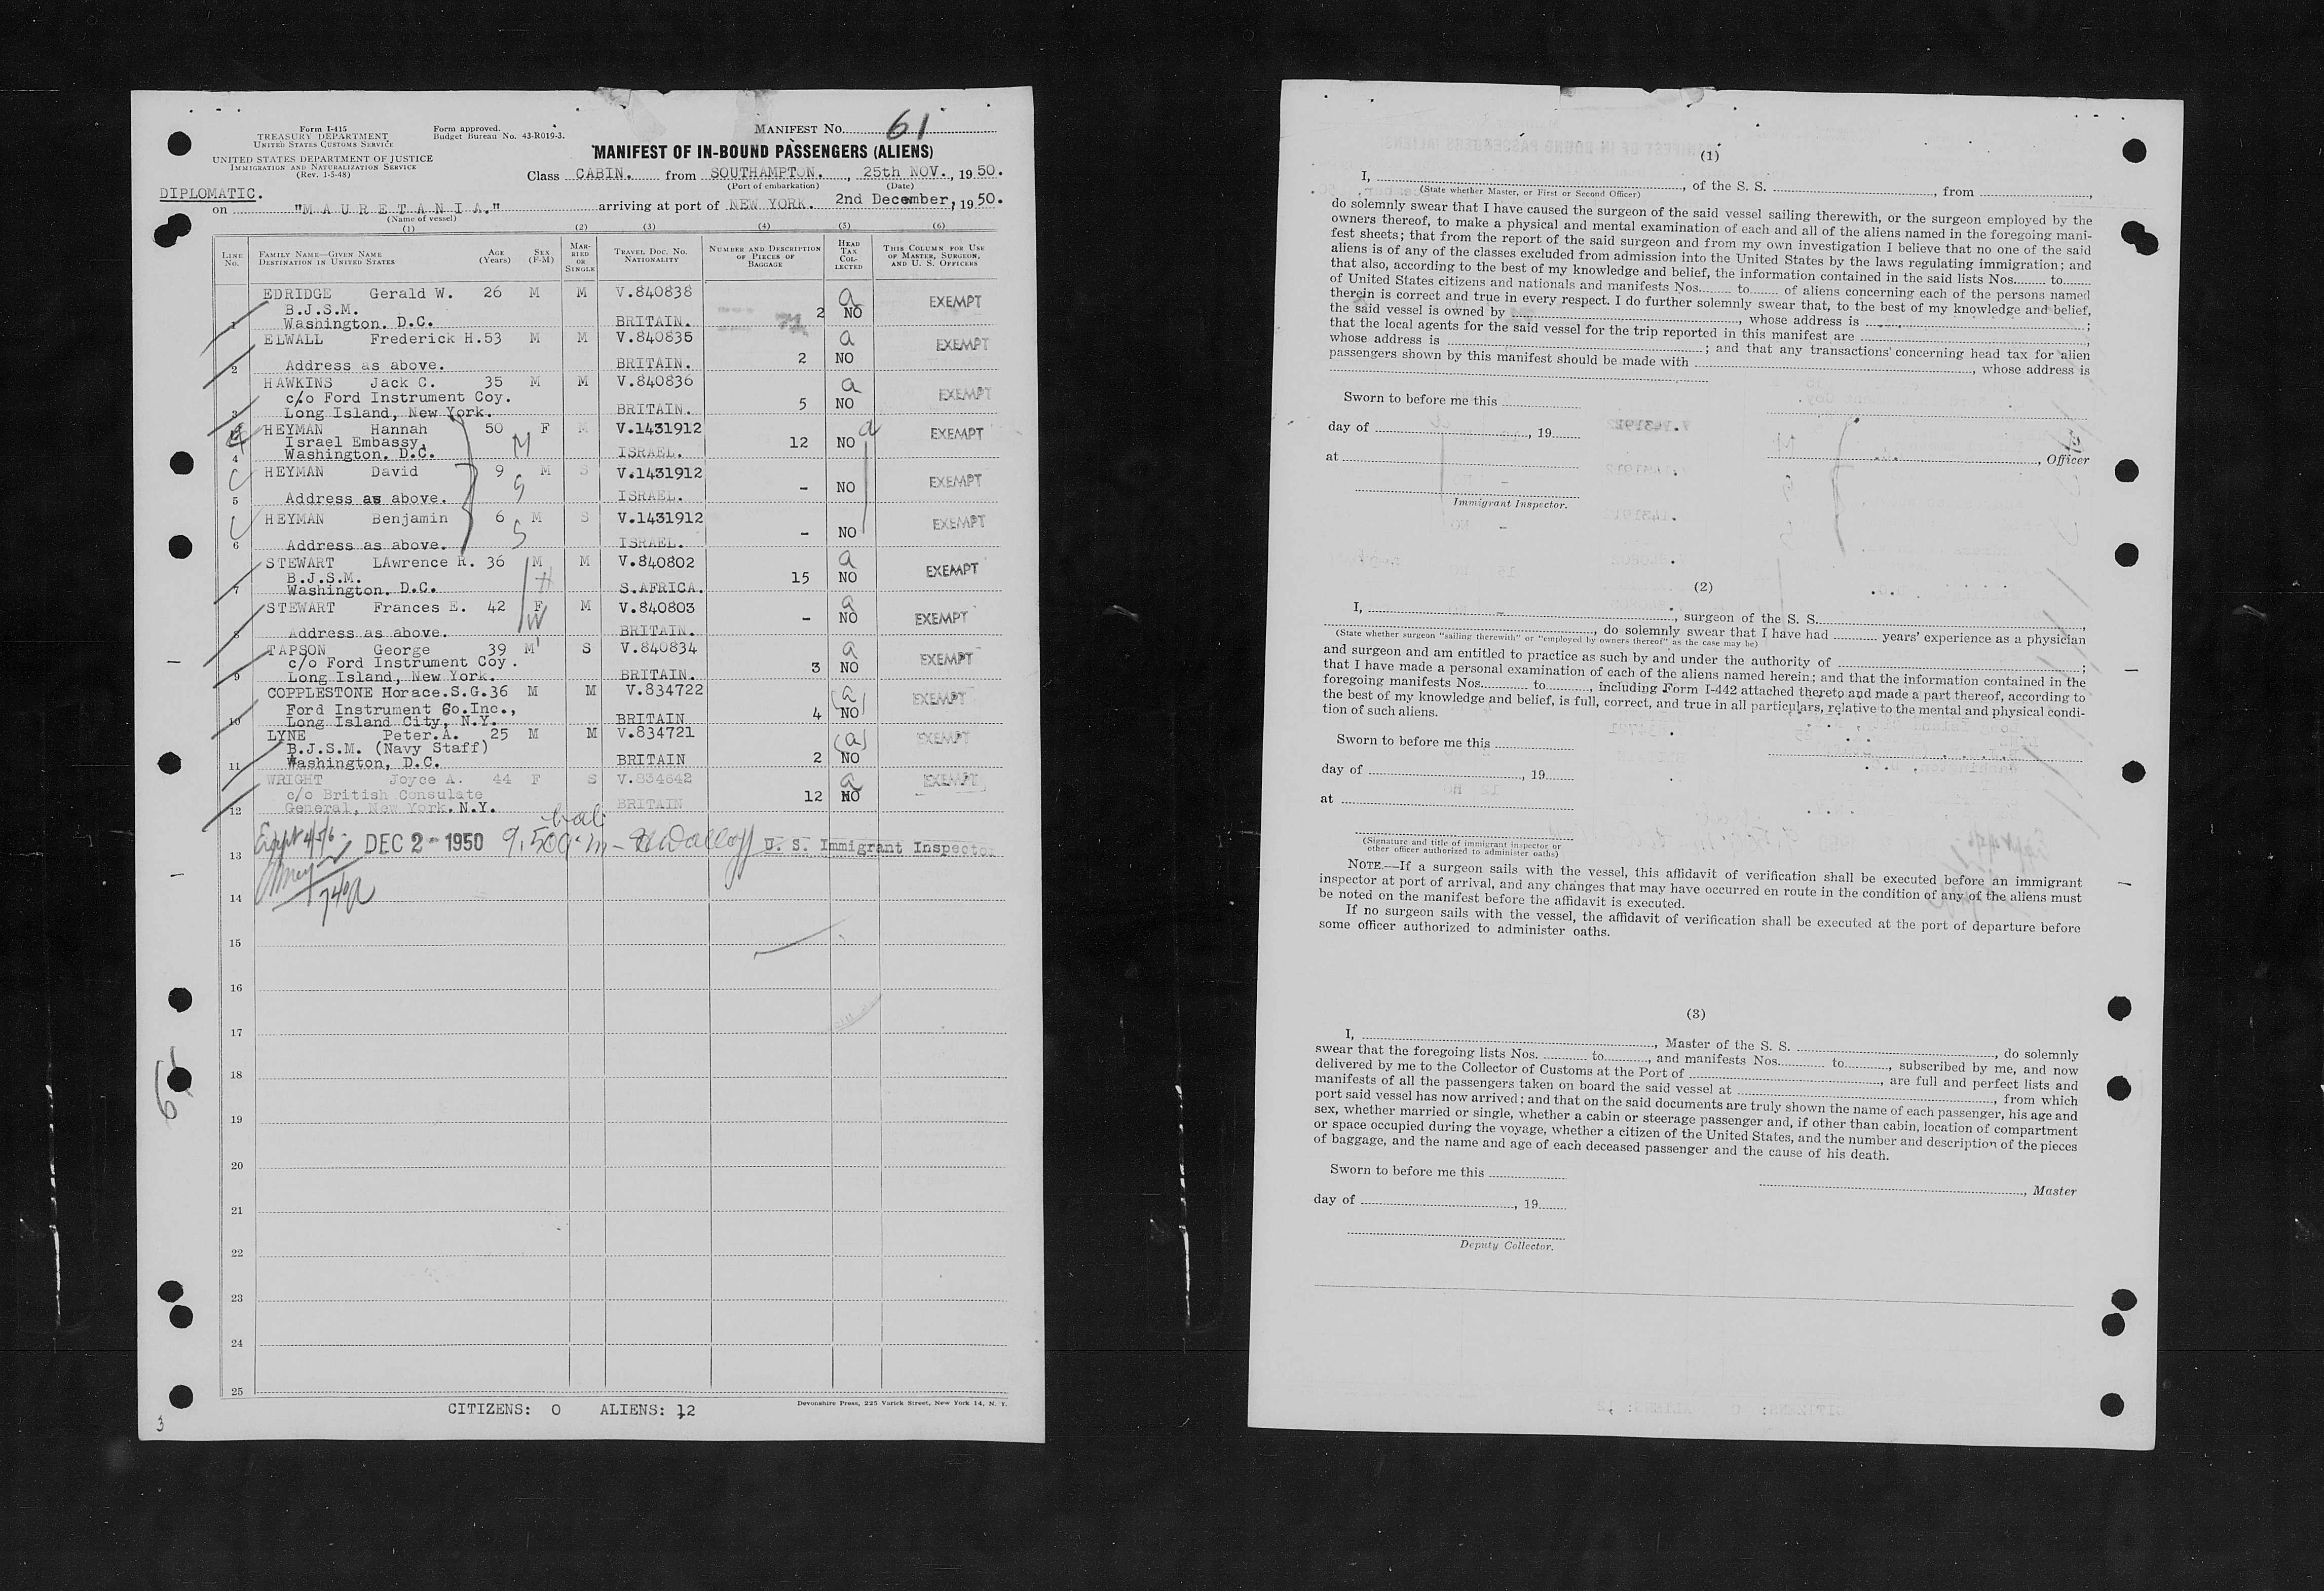 Form I-415
TREASURY DEPARTMENT
UNITED STATES CUSTOMS SERVICE
Form approved.
Budget Bureau No. 43-R019-3.
MANIFEST No. 61
UNITED STATES DEPARTMENT OF JUSTICE
IMMIGRATION AND NATURALIZATION SERVICE
(Rev. 1-5-48)
MANIFEST OF IN-BOUND PASSENGERS (ALIENS)
Class CABIN. from SOUTHAMPTON., 25th NOV., 1950.
(Port of embarkation) (Date)
DIPLOMATIC.
on "MAURETANIA." arriving at port of NEW YORK. 2nd December, 1950.
(Name of vessel)
(1) (2) (3) (4) (5) (6)
LINE No. FAMILY NAME—GIVEN NAME DESTINATION IN UNITED STATES AGE (Years) SEX (F-M) MARRIED OR SINGLE TRAVEL DOC. NO. NATIONALITY NUMBER AND DESCRIPTION OF PIECES OF BAGGAGE HEAD TAX COLLECTED THIS COLUMN FOR USE OF MASTER, SURGEON, AND U. S. OFFICERS
EDRIDGE Gerald W. 26 M M V.840838 a EXEMPT
B.J.S.M. 2 NO
1 Washington. D.C. BRITAIN.
ELWALL Frederick H.53 M M V.840835 a EXEMPT
2 Address as above. BRITAIN. 2 NO
HAWKINS Jack C. 35 M M V.840836 a EXEMPT
c/o Ford Instrument Coy.
3 Long Island, New York. BRITAIN. 5 NO
HEYMAN Hannah 50 F M V.1431912 a EXEMPT
Israel Embassy, M 12 NO
4 Washington. D.C. ISRAEL.
HEYMAN David 9 M S V.1431912 EXEMPT
5 Address as above. S ISRAEL. - NO
HEYMAN Benjamin 6 M S V.1431912 EXEMPT
6 Address as above. S ISRAEL. - NO
STEWART LAwrence R. 36 M M V.840802 a EXEMPT
B.J.S.M. H 15 NO
7 Washington. D.C. S.AFRICA.
STEWART Frances E. 42 F M V.840803 a EXEMPT
8 Address as above. W BRITAIN. - NO
TAPSON George 39 M S V.840834 a EXEMPT
c/o Ford Instrument Coy.
9 Long Island, New York. BRITAIN. 3 NO
COPPLESTONE Horace.S.G.36 M M V.834722 (a) EXEMPT
Ford Instrument Co.Inc.,
10 Long Island City, N.Y. BRITAIN 4 NO
LYNE Peter.A. 25 M M V.834721 (a) EXEMPT
B.J.S.M. (Navy Staff)
11 Washington, D.C. BRITAIN 2 NO
WRIGHT Joyce A. 44 F S V.834642 a EXEMPT
c/o British Consulate 12 NO
12 General, New York. N.Y. BRITAIN
13 DEC 2 - 1950 9.50 a.m - U. S. Immigrant Inspector
14
15
16
17
18
19
20
21
22
23
24
25
CITIZENS: 0 ALIENS: 12
Devonshire Press, 225 Varick Street, New York 14, N. Y.
3
(1)
I, , of the S. S. , from ,
(State whether Master, or First or Second Officer)
do solemnly swear that I have caused the surgeon of the said vessel sailing therewith, or the surgeon employed by the
owners thereof, to make a physical and mental examination of each and all of the aliens named in the foregoing mani-
fest sheets; that from the report of the said surgeon and from my own investigation I believe that no one of the said
aliens is of any of the classes excluded from admission into the United States by the laws regulating immigration; and
that also, according to the best of my knowledge and belief, the information contained in the said lists Nos. to
of United States citizens and nationals and manifests Nos. to of aliens concerning each of the persons named
therein is correct and true in every respect. I do further solemnly swear that, to the best of my knowledge and belief,
the said vessel is owned by , whose address is ;
that the local agents for the said vessel for the trip reported in this manifest are ,
whose address is ; and that any transactions concerning head tax for alien
passengers shown by this manifest should be made with , whose address is
Sworn to before me this
day of , 19
at , Officer
Immigrant Inspector.
(2)
I, , surgeon of the S. S. ,
, do solemnly swear that I have had years' experience as a physician
(State whether surgeon "sailing therewith" or "employed by owners thereof" as the case may be)
and surgeon and am entitled to practice as such by and under the authority of ;
that I have made a personal examination of each of the aliens named herein; and that the information contained in the
foregoing manifests Nos. to , including Form I-442 attached thereto and made a part thereof, according to
the best of my knowledge and belief, is full, correct, and true in all particulars, relative to the mental and physical condi-
tion of such aliens.
Sworn to before me this
day of , 19
at
(Signature and title of immigrant inspector or
other officer authorized to administer oaths)
NOTE.—If a surgeon sails with the vessel, this affidavit of verification shall be executed before an immigrant
inspector at port of arrival, and any changes that may have occurred en route in the condition of any of the aliens must
be noted on the manifest before the affidavit is executed.
If no surgeon sails with the vessel, the affidavit of verification shall be executed at the port of departure before
some officer authorized to administer oaths.
(3)
I, , Master of the S. S. , do solemnly
swear that the foregoing lists Nos. to , and manifests Nos. to , subscribed by me, and now
delivered by me to the Collector of Customs at the Port of , are full and perfect lists and
manifests of all the passengers taken on board the said vessel at , from which
port said vessel has now arrived; and that on the said documents are truly shown the name of each passenger, his age and
sex, whether married or single, whether a cabin or steerage passenger and, if other than cabin, location of compartment
or space occupied during the voyage, whether a citizen of the United States, and the number and description of the pieces
of baggage, and the name and age of each deceased passenger and the cause of his death.
Sworn to before me this
, Master
day of , 19
Deputy Collector.